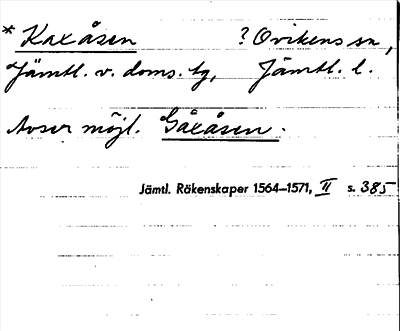 * Kaxåsen ? Ovikens sn,
Jämtl. v. doms. tg, Jämtl. l.
Avser möjl. Gåxåsen.
Jämtl. Räkenskaper 1564–1571, II s. 385